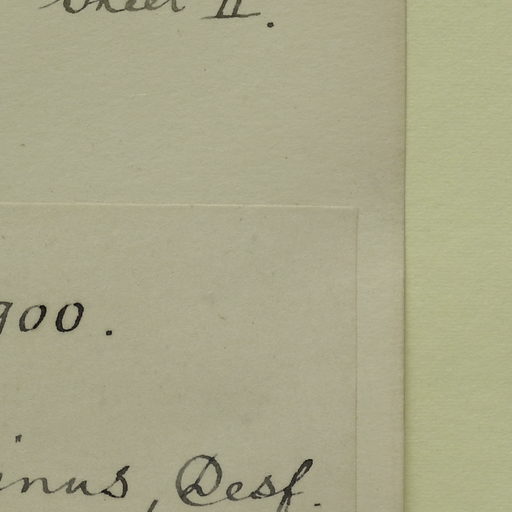 Sheet II.
900.
inus, Desf.